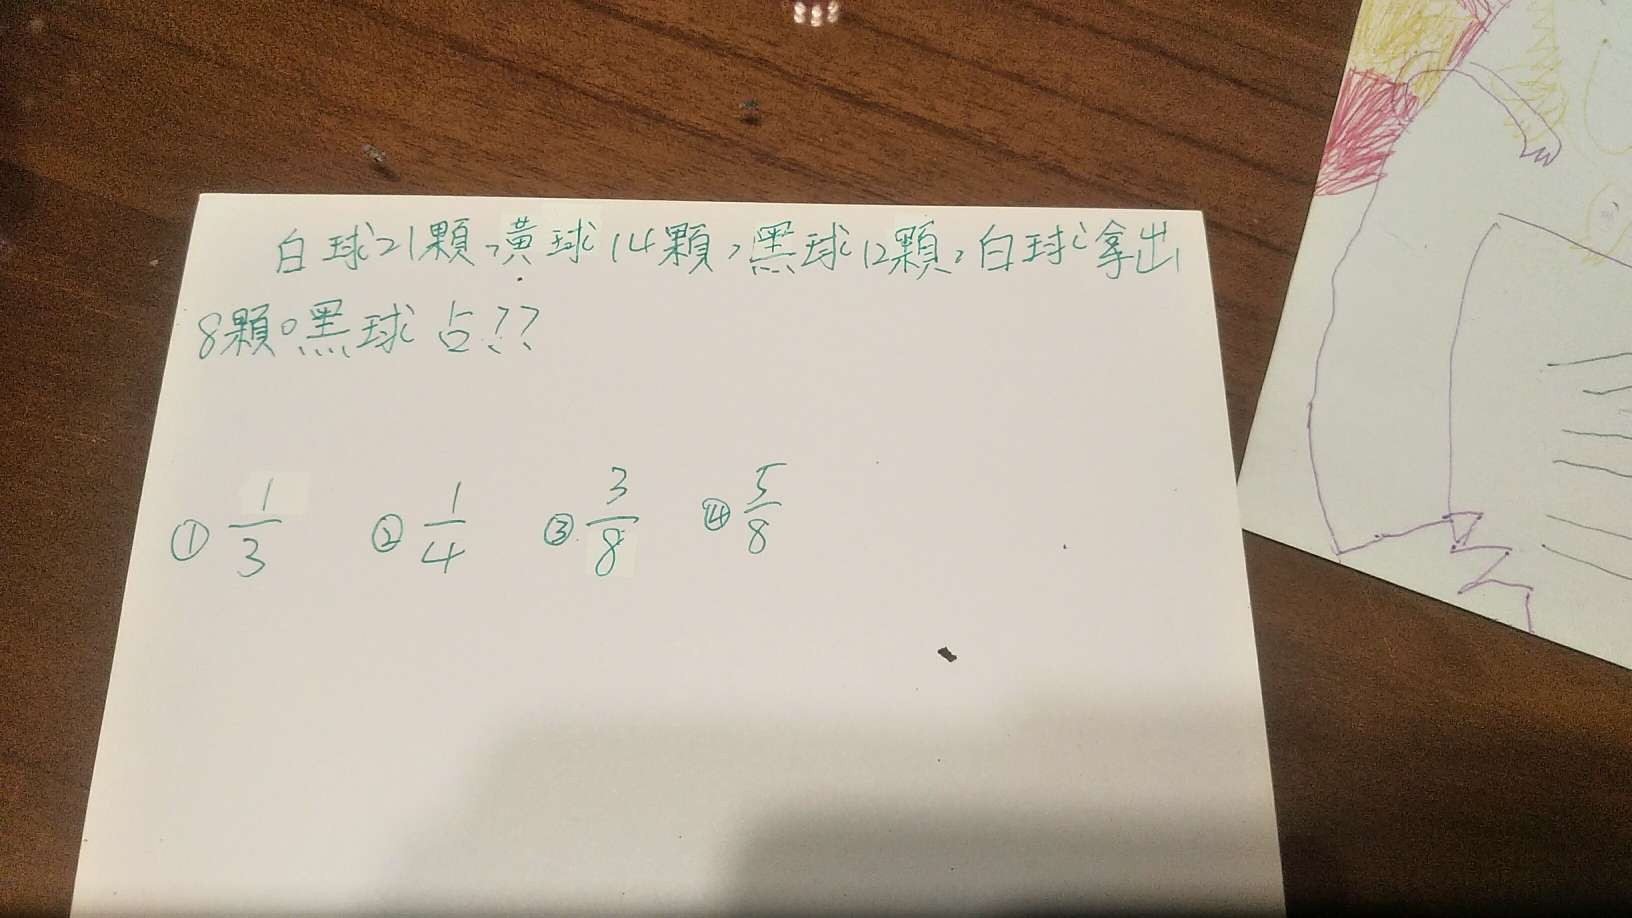 白球21顆,黃球14顆,黑球12顆,白球拿出
8顆。黑球占??
① 1/3 ② 1/4 ③ 3/8 ④ 5/8